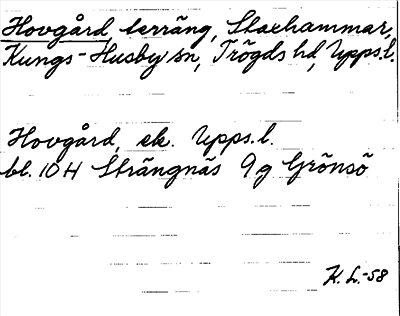 Hovgård, terräng, Staxhammar,
Kungs-Husby sn, Trögds hd, Upps.l.
Hovgård, ek. Upps.l.
bl. 10 H Strängnäs 9 g Grönsö
K. L.-58